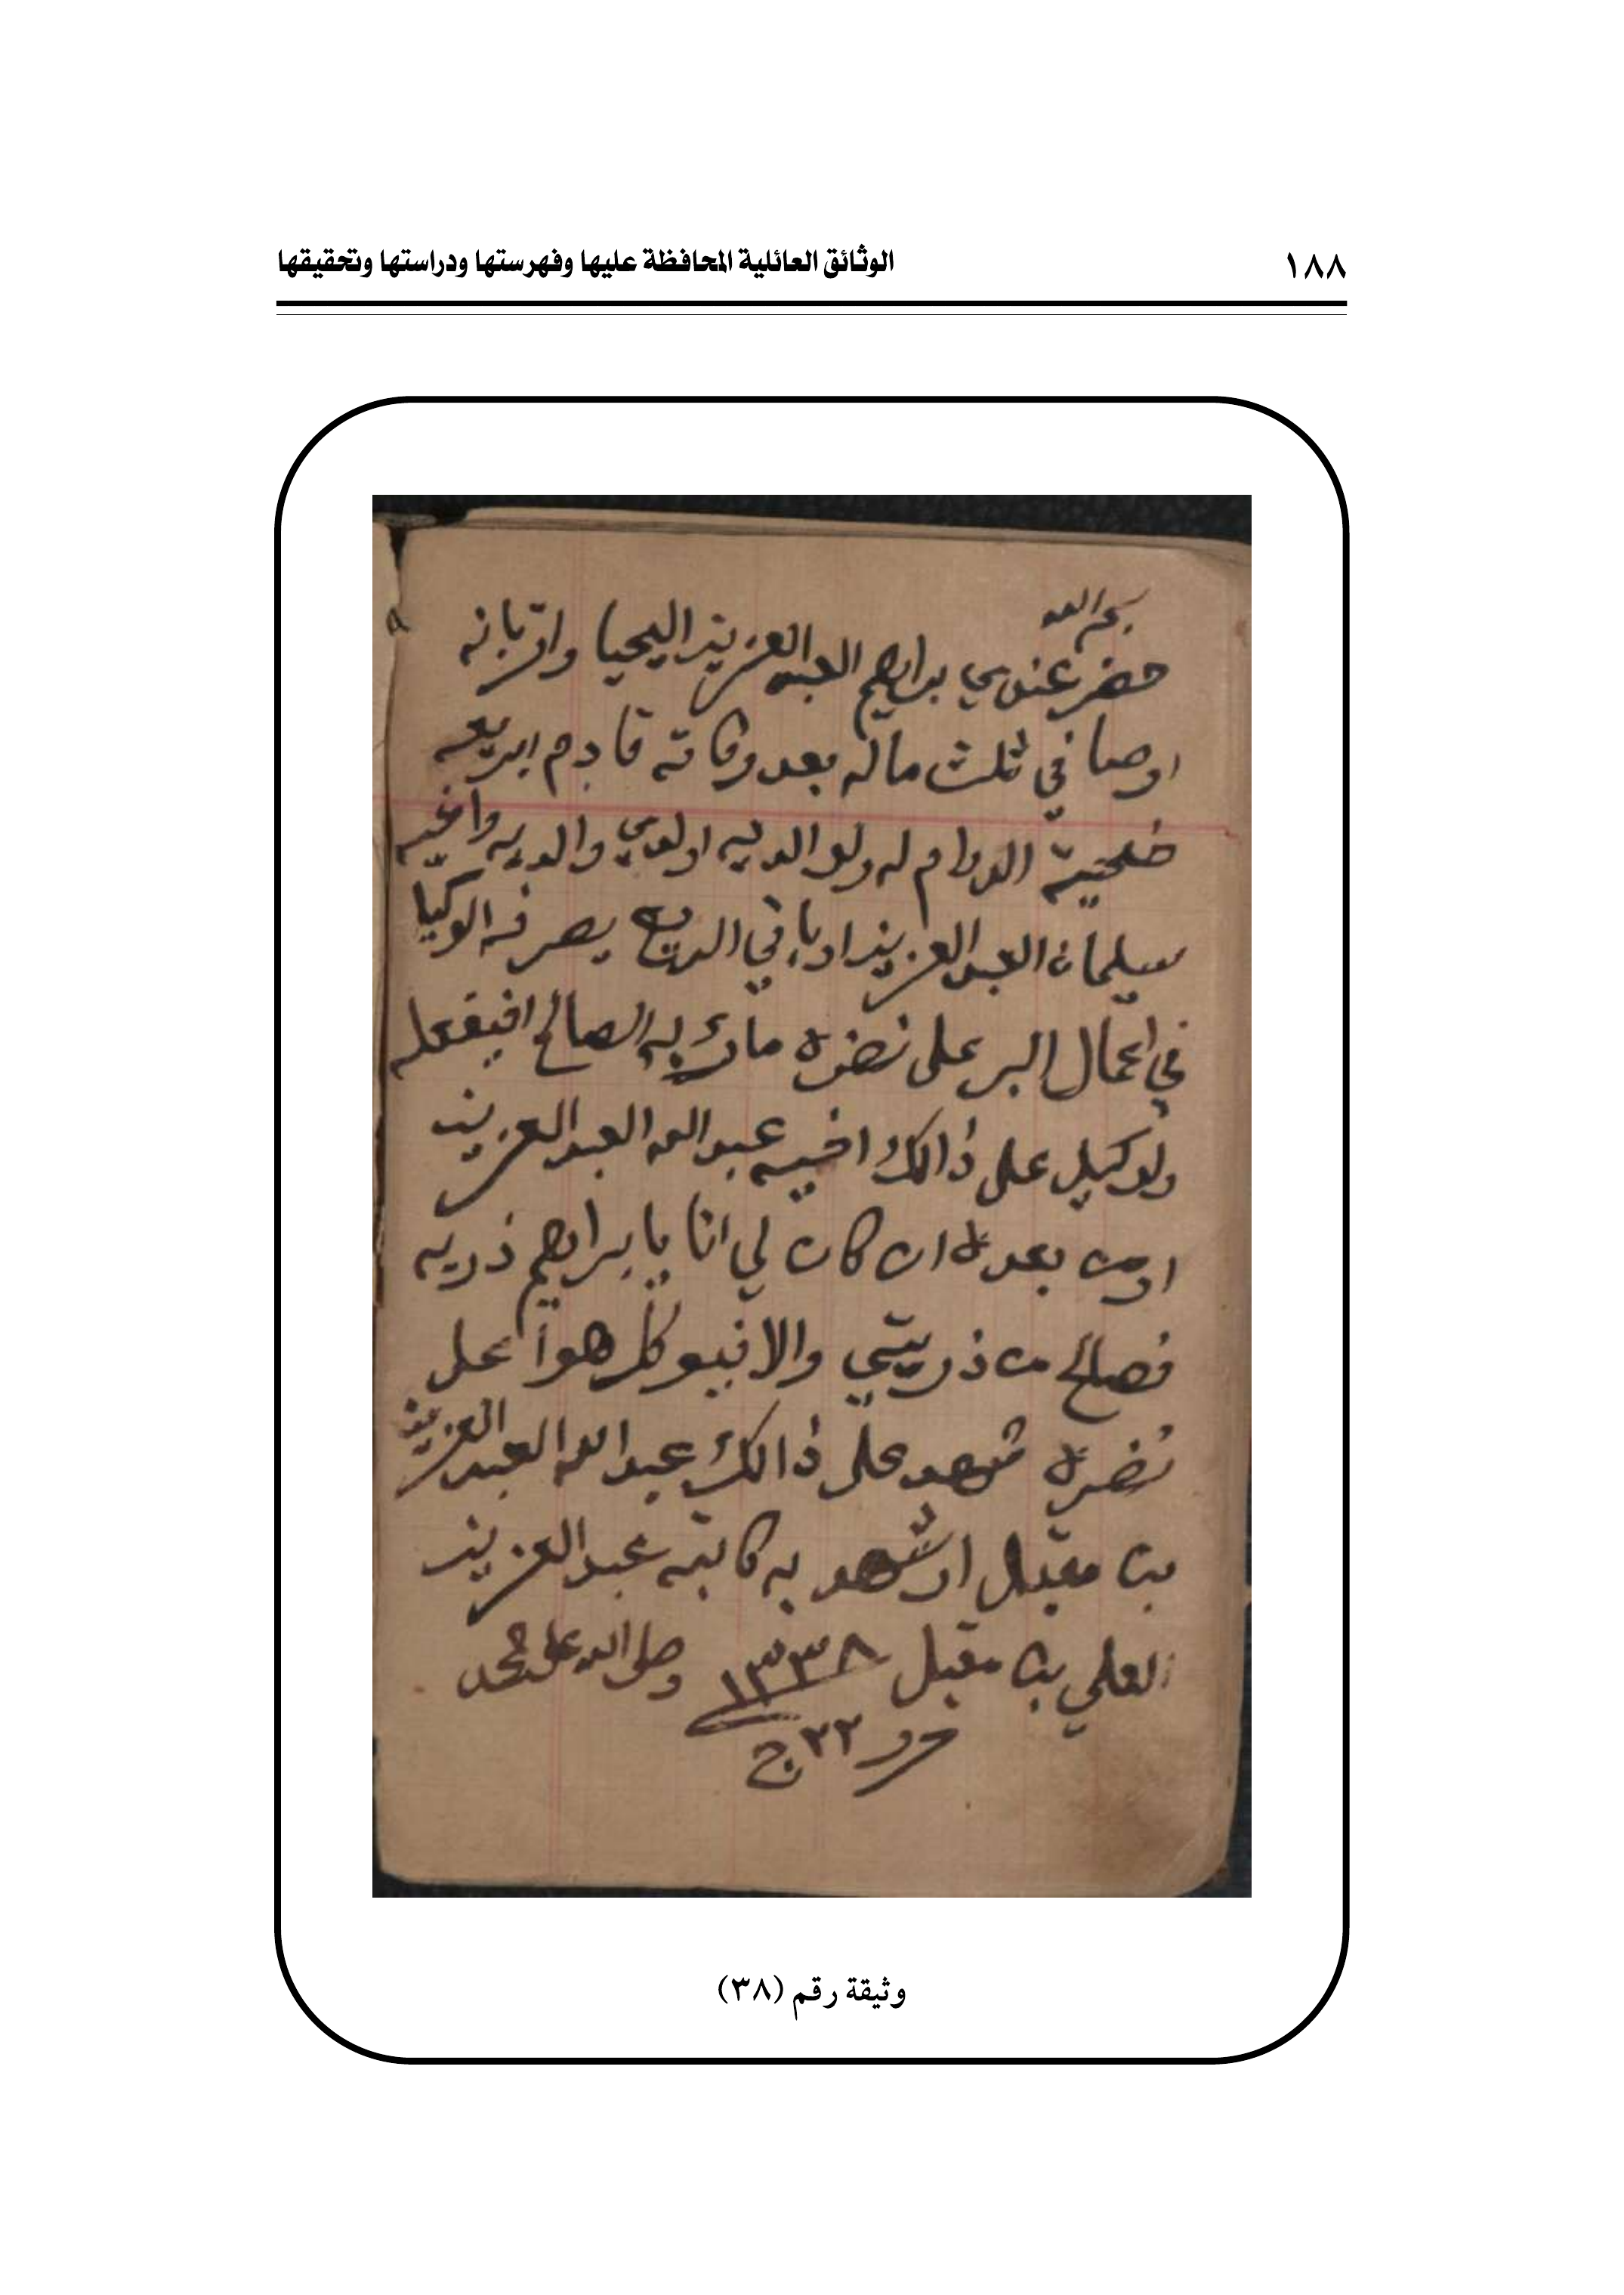 ١٨٨
الوثائق العائلية المحافظة عليها وفهرستها ودراستها وتحقيقها
بسم الله
حضر عندي براهيم العبد العزيز اليحيا واقر بانه
اوصا في ثلث ماله بعد وفاته قادم ابريعه
ضحية الدوام له ولوالديه اولدي والديه واخيه
سليمان العبد العزيز اوباقي الريع يصرفه الوكيل
في اعمال البر على نضره مارئ به الصالح افيفعله
ولوكيل على ذالك اخيه عبدالله العبد العزيز
اومن بعده ان كان لي انا يا براهيم ذريه
فصالح من ذريتي والا فيوكل هوا على
نضره شهد على ذالك عبدالله العبد العزيز
بن مقبل اوشهد به كاتبه عبدالعزيز
العلي بن مقبل ١٣٣٨ وصلى الله على محمد
حرر ٢٢ ج
وثيقة رقم (٣٨)